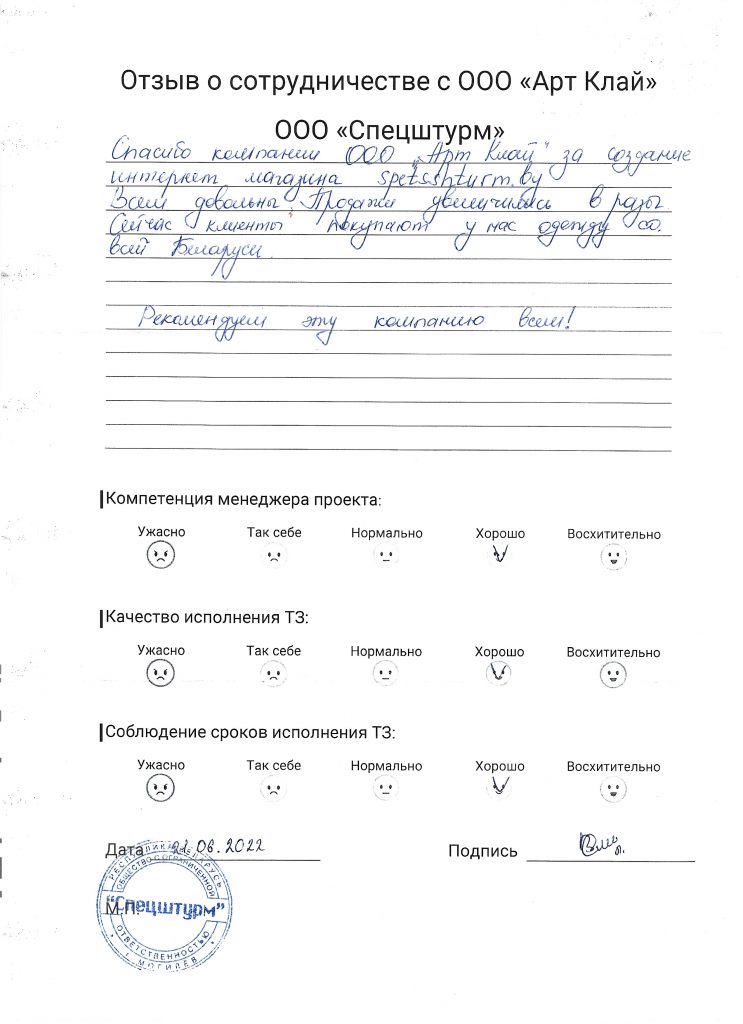 Отзыв о сотрудничестве с ООО «Арт Клай»
ООО «Спецштурм»
Спасибо компании ООО „Арт Клай" за создание
интернет магазина spetsshturm.by
Всем довольны. Продажи увеличились в разы.
Сейчас клиенты покупают у нас одежду со
всей Беларуси.
Рекомендуем эту компанию всем!
Компетенция менеджера проекта:
Ужасно Так себе Нормально Хорошо Восхитительно
Качество исполнения ТЗ:
Ужасно Так себе Нормально Хорошо Восхитительно
Соблюдение сроков исполнения ТЗ:
Ужасно Так себе Нормально Хорошо Восхитительно
Дата 21.06.2022 Подпись
М.П.
РЕСПУБЛИКА БЕЛАРУСЬ
ОБЩЕСТВО С ОГРАНИЧЕННОЙ
"Спецштурм"
ОТВЕТСТВЕННОСТЬЮ
г. МОГИЛЕВ